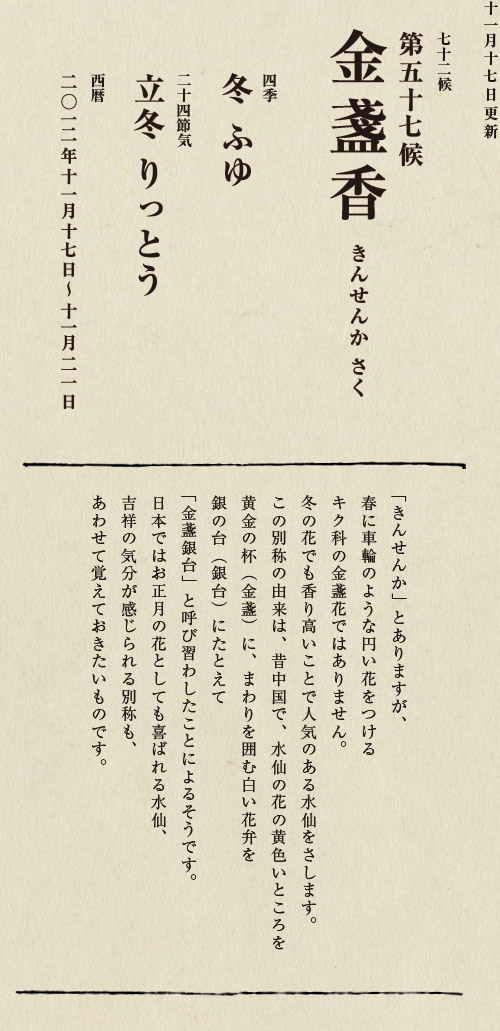 十一月十七日更新
七十二候
第五十七候
金盞香 きんせんか さく
四季
冬 ふゆ
二十四節気
立冬 りっとう
西暦
二〇一二年十一月十七日~十一月二一日
「きんせんか」とありますが、
春に車輪のような円い花をつける
キク科の金盞花ではありません。
冬の花でも香り高いことで人気のある水仙をさします。
この別称の由来は、昔中国で、水仙の花の黄色いところを
黄金の杯(金盞)に、まわりを囲む白い花弁を
銀の台(銀台)にたとえて
「金盞銀台」と呼び習わしたことによるそうです。
日本ではお正月の花としても喜ばれる水仙、
吉祥の気分が感じられる別称も、
あわせて覚えておきたいものです。